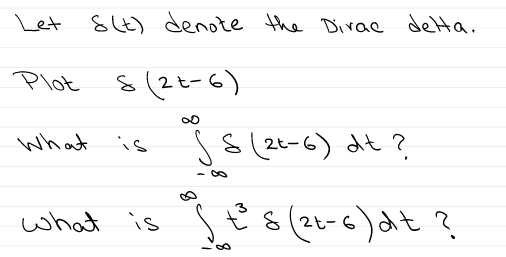 Let δ(t) denote the Dirac delta.
Plot δ(2t-6)
What is ∫_{-∞}^{∞} δ(2t-6) dt ?
What is ∫_{-∞}^{∞} t³ δ(2t-6) dt ?